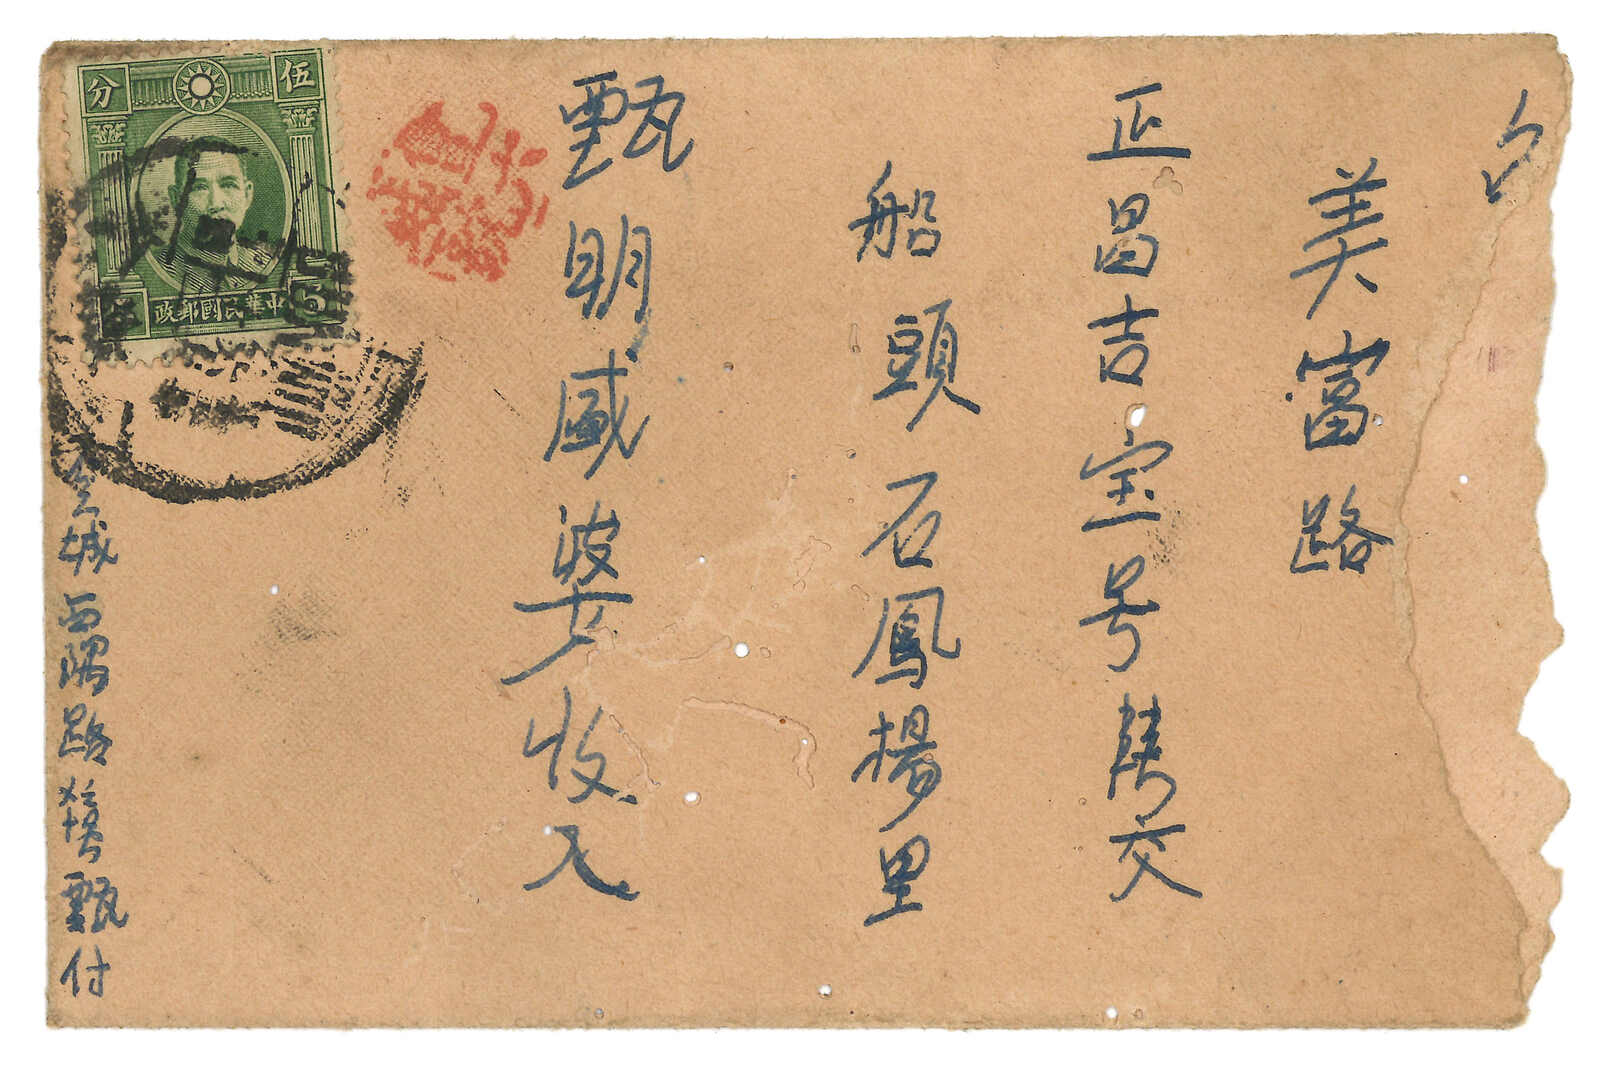 美富路
正昌吉宝号 交
船頭石鳳楊里
甄明盛 收入
城西隅路 甄付
伍分
中華民國郵政
5